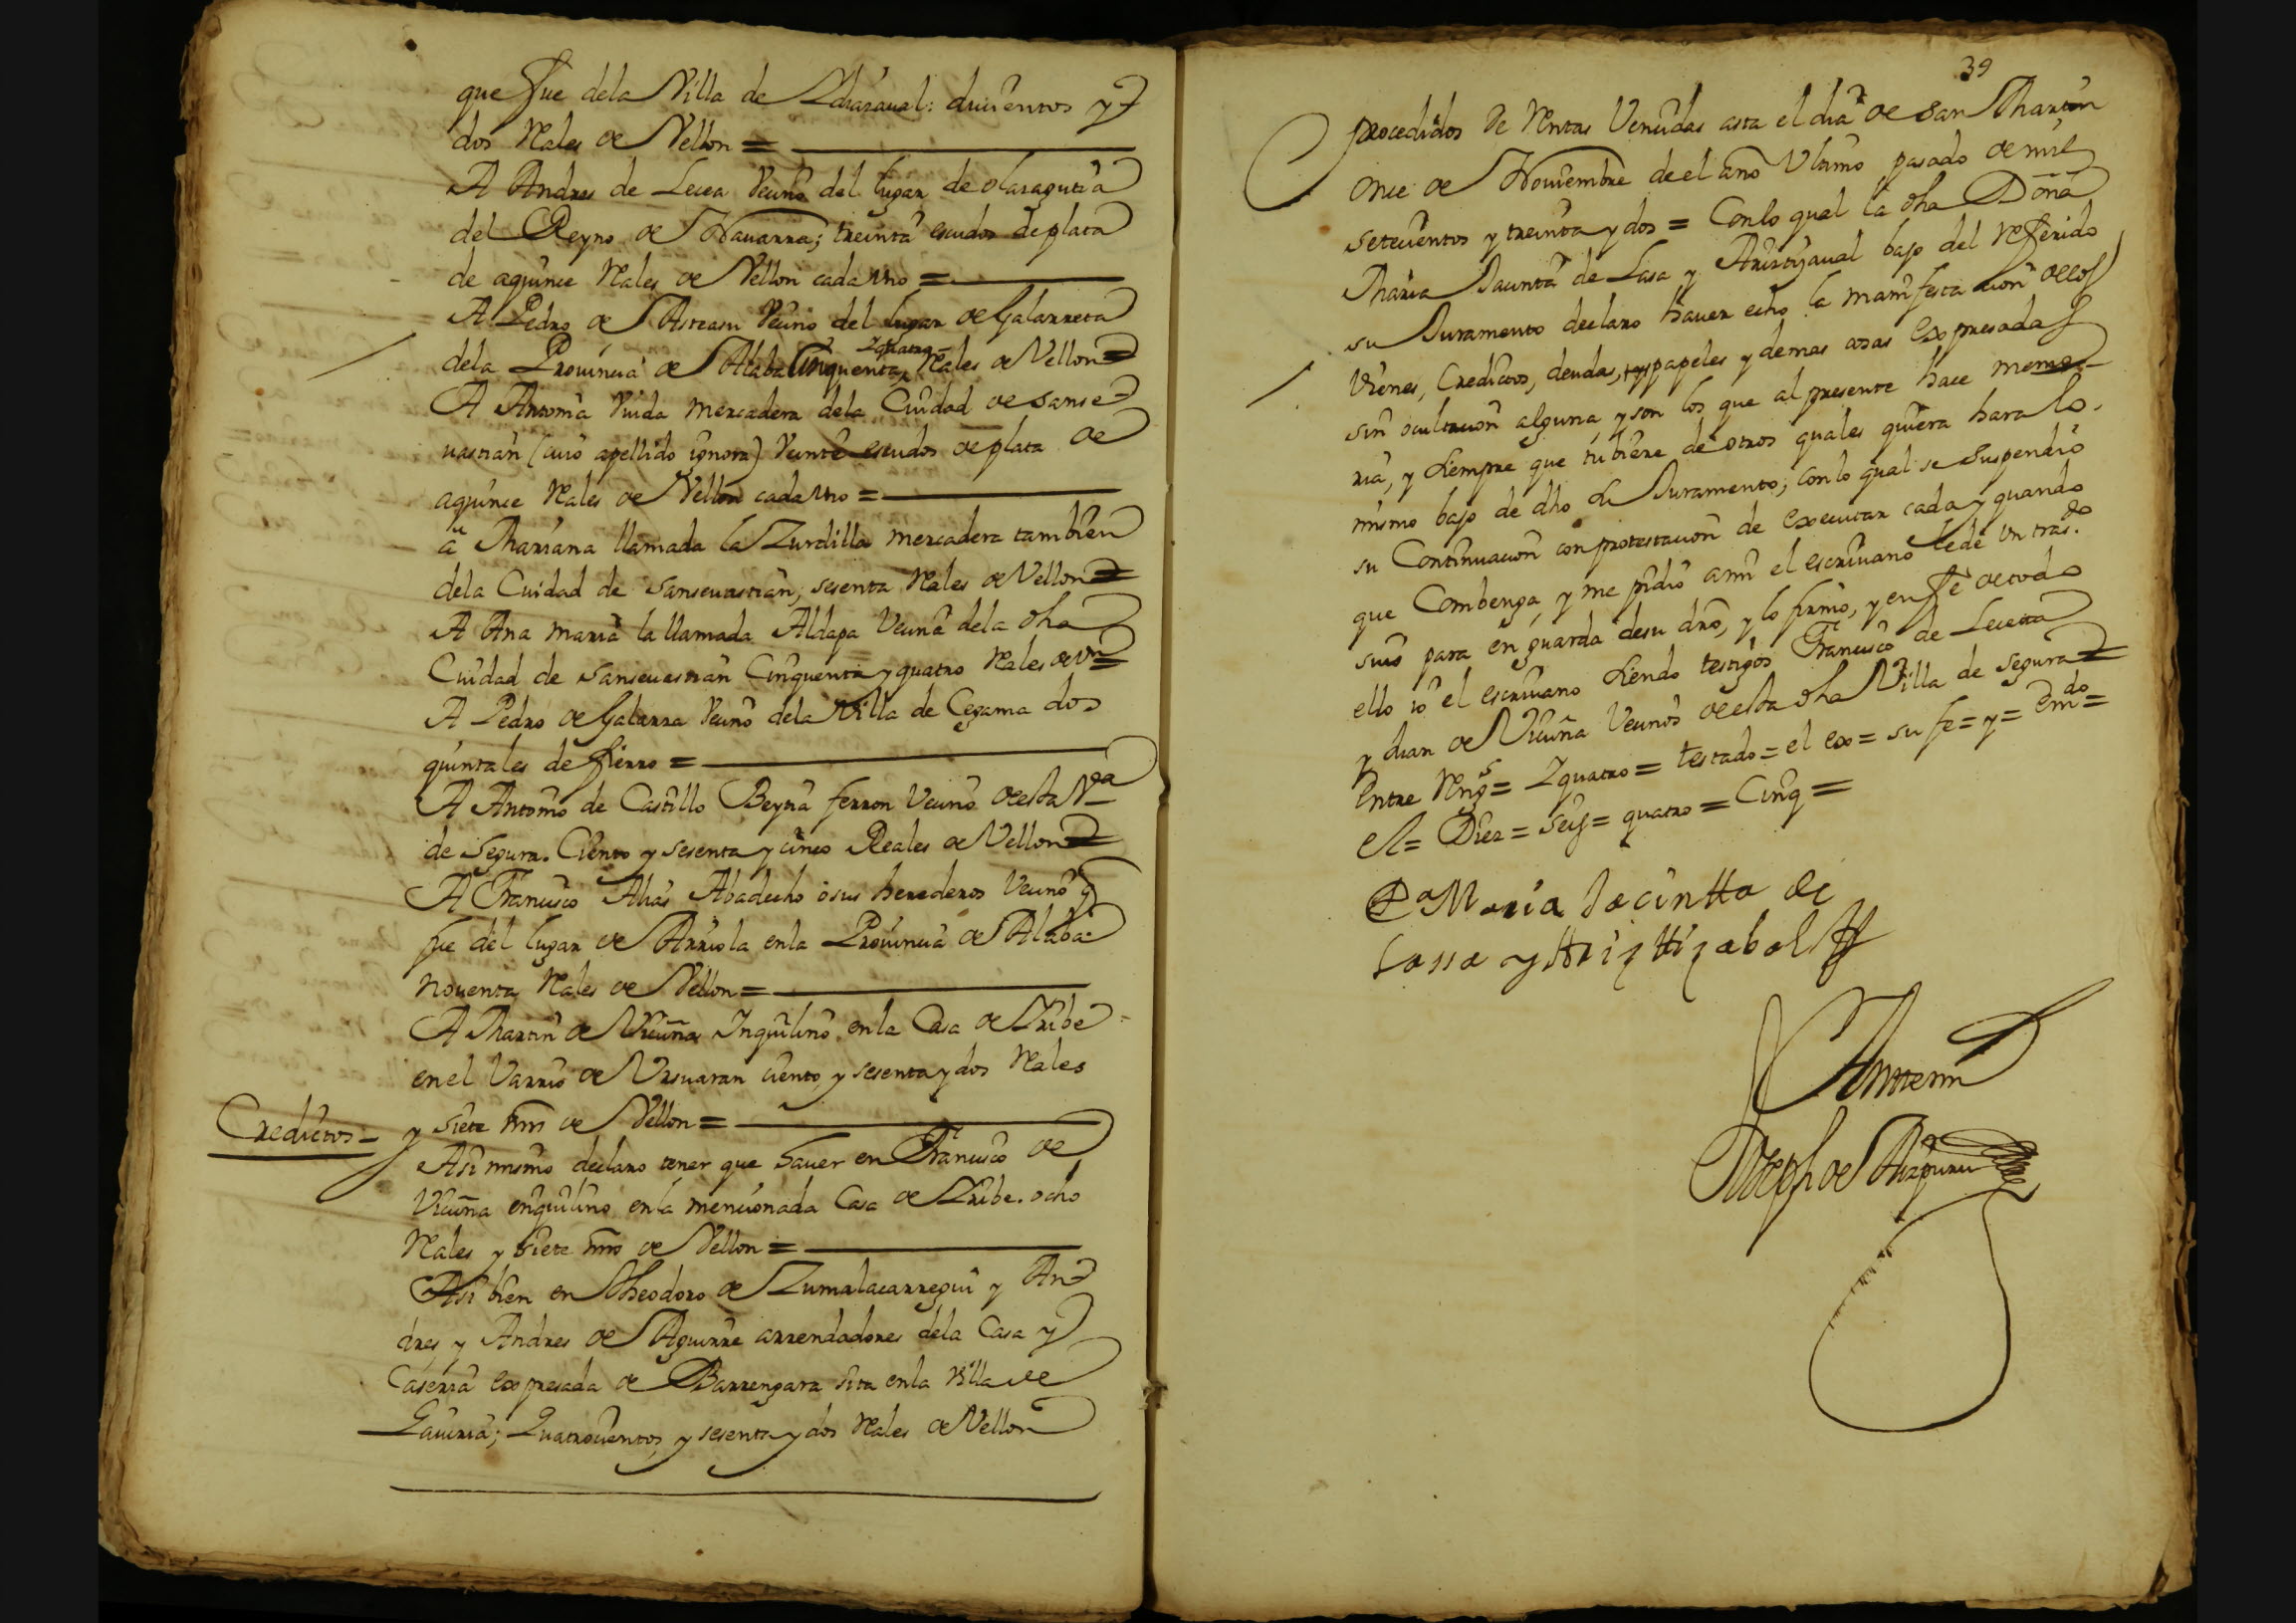 que fue dela Villa de Idiazaual: ducientos y
dos Reales de Vellon =
A Andres de Lecea Vecino del lugar de olaragutia
del Reyno de Nauarra; treinta escudos de plata
de aquince Reales de Vellon cada vno =
A Pedro de Asteasu Vecino del lugar de Galarreta
Zquatro
dela Prouincia de Alaba Cinquenta Reales de Vellon =
A Antonia Viuda mercadera dela Ciudad de sanse
uastian (cuio apellido ignora) Veinte escudos de plata de
aquince Reales de Vellon cada vno =
a Mariana llamada la Zurdilla mercadera tambien
dela Cuidad de Sanseuastian, sesenta Reales de Vellon =
A Ana maria la llamada Aldapa Vecina dela dha
Ciudad de Sanseuastian Cinquenta y quatro Reales de Vn =
A Pedro de Galarza Vecino dela Villa de Cegama dos
quintales de fierro =
A Antonio de Castillo Beyra ferron Vecino de esta Va
de Segura. Ciento y sesenta y cinco Reales de Vellon =
A Francisco Alias Abadecho o sus herederos Vecino q
fue del lugar de Arriola en la Prouincia de Alaba
Noventa Reales de Vellon =
A Martin de Vicuña Inquilino en la Casa de Iribe
en el Varrio de Vrsuaran ciento y sesenta y dos Reales
y siete mrs de Vellon =
Credictos =
Asi mismo declaro tener que hauer en Francisco de
Vicuña enquilino en la mencionada Casa de Iribe. ocho
Reales y siete mrs de Vellon =
Asi bien en Theodoro de Zumalacarregui y An
dres y Andres de Aguirre arrendadores dela Casa y
Caseria expresada de Barrengara sita en la Villa de
Gauiria; Quatrocientos y sesenta y dos Reales de Vellon
39
procedidos de Rentas Vencidas asta el dia de San Martin
Once de Nouiembre de el año Vltimo pasado de mil
setecientos y treinta y dos = Con lo qual la dha Doña
Maria Jacinta de Lasa y Ariztizaual bajo del referido
su Juramento declaro hauer echo la manifestacion de los
Vienes, Credictos, deudas, papeles y demas cosas expresadas
sin ocultacion alguna y son los que al presente hace memo
ria, y siempre que tubiere de otros quales quiera hara lo
mismo bajo de dho su Juramento; con lo qual se suspendio
su Continuacion con protestacion de executar cada y quando
que Combenga, y me pidio ami el escriuano le de un tras.do
suio para en guarda desu dro, y lo firmo, y en fe de todo
ello io el escriuano siendo testigos Francisco de Lecetta
y Juan de Vicuña Vecinos de esta dha Villa de Segura =
Entre Rengs = Zquatro = testado = el ex = su fe = y = Emdo =
el = Diez = seis = quatro = Cinq =
Da Maria Jacintta de
Lassa y Ariztizabal
Antemi
Joseph de Aizpuru